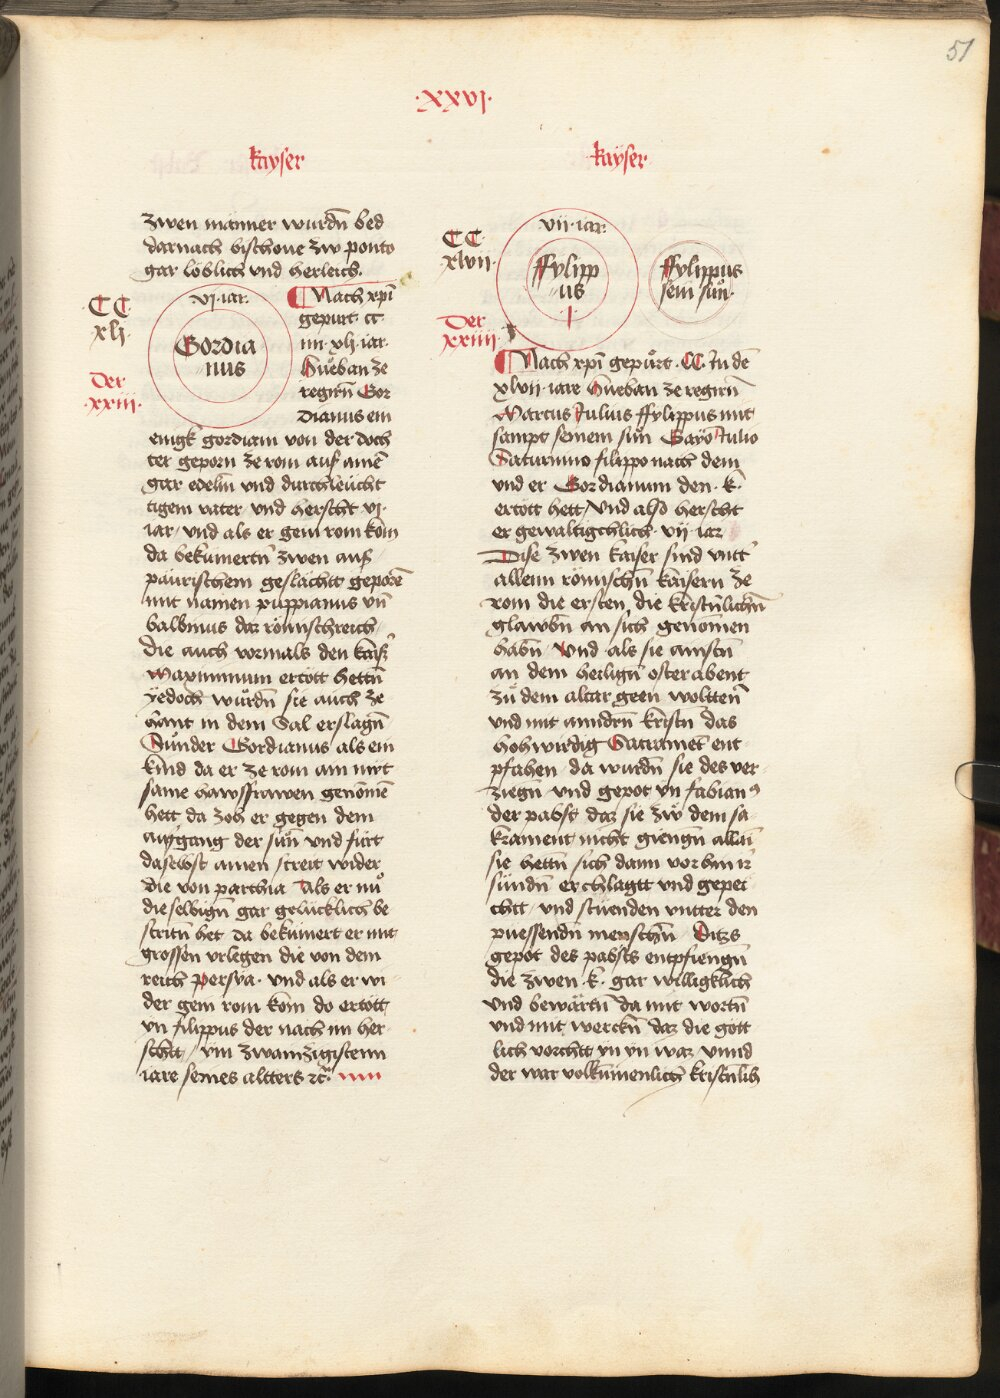 51
·XXVI·
kayser
zwen männer wurdn̄ bed
darnach bischoue zw ponto
gar löblich vnd herleich.
CC
xlj·
Der
·xxiii·
·vi·iar·
Gordia
nus
Nach xp̄i
gepurt· cc·
iar·
Hueban ze
regirn̄ Gor
dianus ein
enigk gordiani von der doch
ter geporn ze rom auf ainē
gar edelm vnd durchleucht
tigem vater vnd herscht vi·
iar· vnd als er gem rom kom
da bekumertn̄ zwen auf
päurischem geslächtt geporē
mit namen puppianus vn̄
balbinus daz römschreich
die auch vormals den kais
Maximinum ertött hettn̄
yedoch wurdn̄ sie auch ze
hant in dem Sal erslagn̄
Sunder Gordianus als ein
kind da er ze rom am nie
kaine hawsfrawen genomē
hett da zoh er gegen dem
aufgang der sun̄ vnd fürt
daselbst ainen streit wider
die von parthia Als er nu
die selbign̄ gar gelücklich be
stritn̄ het da bekumert er mit
grossen vrlegen die von dem
reich persya· vnd als er wi
der gem rom kom do ertött
yn filippus der nach im her
schtt, ym zwainzigistenn
iare seines altters ꝛc̄·
kayser
CC·
xlvii·
Der
xxiiij
vii·iar·
ffylipp
us
I
ffylippus
sein sun·
Nach xp̄i gepurt· CC· In dē
xlvii· iare Hueban ze regirn̄
Marcus Julius ffylippus mit
sampt seinem sun̄ Gayo Julio
Saturnino filippo nach dem
vnd er Gordianum den· k·
ertött hett, vnd also herscht
er gewaltigchlich· vij iar
Dise zwen kaiser sind vntt'
allenn römischn̄ kaisern ze
rom die ersten, die kristnlichn̄
glawbn̄ an sich genomen
habn̄ Vnd als sie ainstn̄
an dem heilign̄ osterabent
zu dem altar geen woltten̄
vnd mit anndrn̄ kristn̄ das
hohwirdig Sacramēt ent
pfahen da wurdn̄ sie des ver
ziegn̄ vnd gepot yn fabian⁹
der pabst daz sie zw dem sa
krament nicht giengn̄ allai
sie hettn̄ sich dann vor hin ir
sündn̄ erchlagtt vnd gepei
chtt vnd stuenden vntter den
puessendn̄ menschn̄ Ditzs
gepot des pabsts entpfiengn̄
die zwen· k· gar willigklich
vnd bewärtn̄ da mit wortn̄
vnd mit werckn̄ daz die gott
lich vorchtt yn yn waz vnnd
der war volkumenlich kristnlih